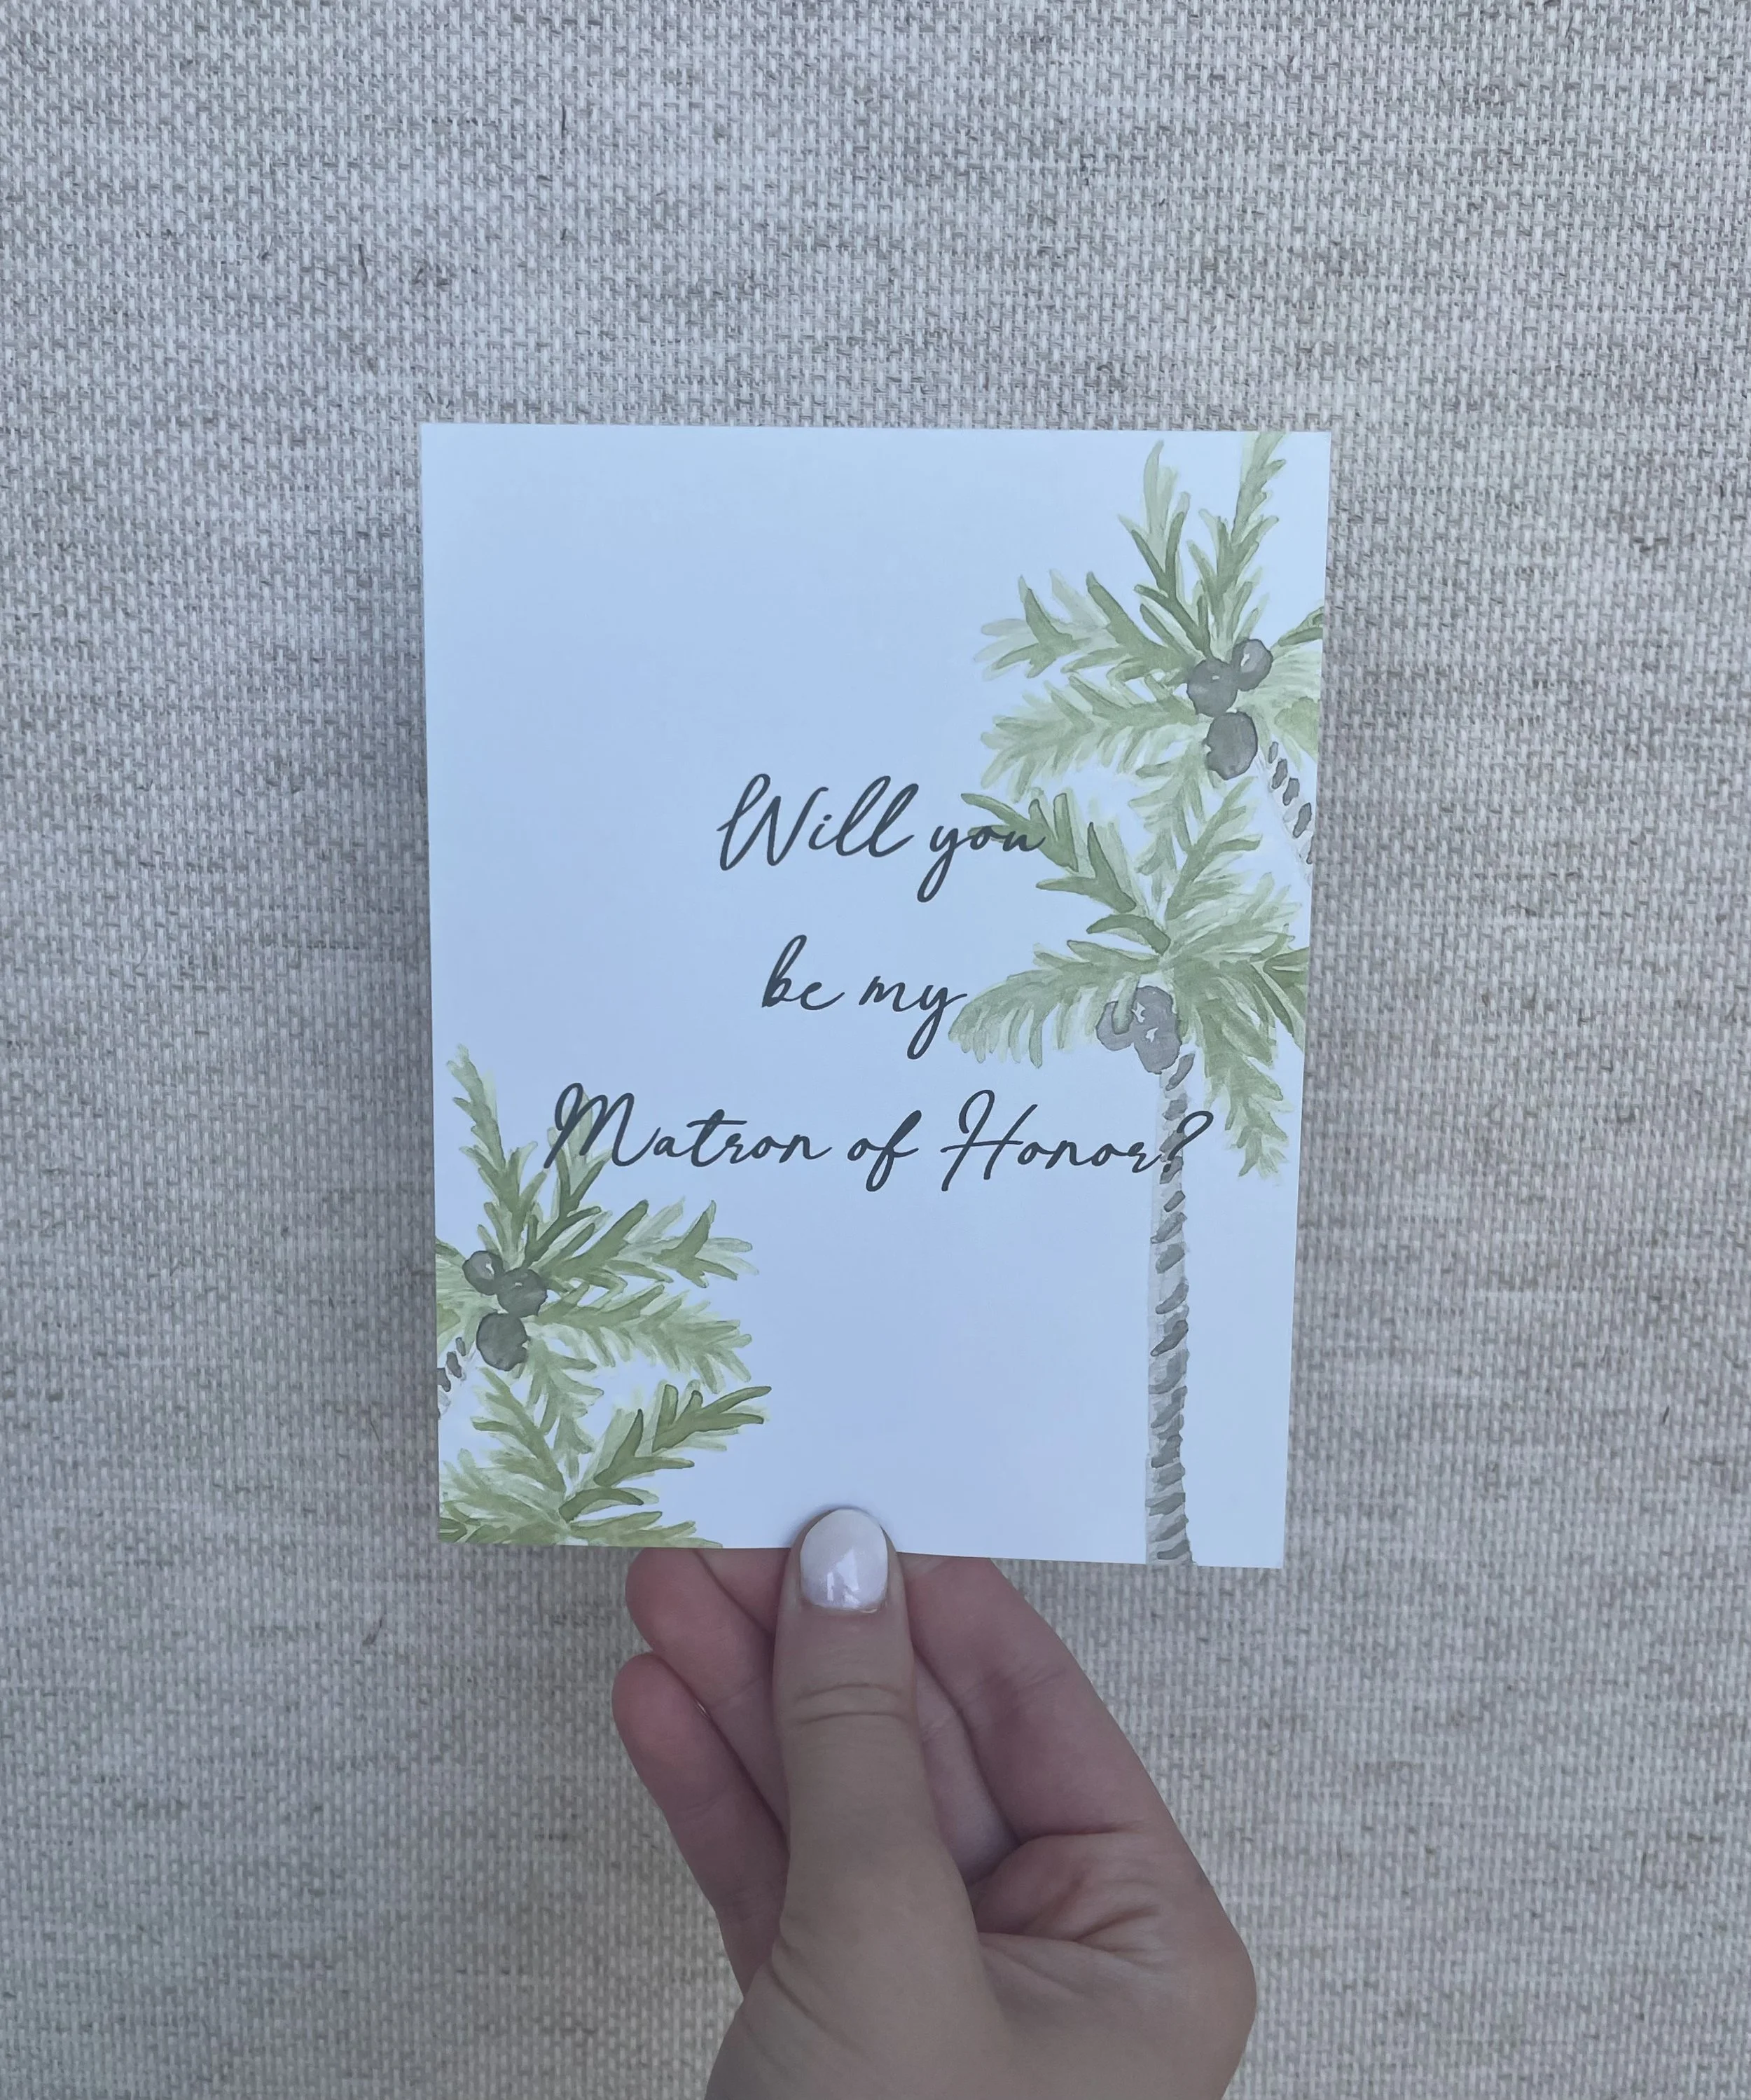 Will you
be my
Matron of Honor?